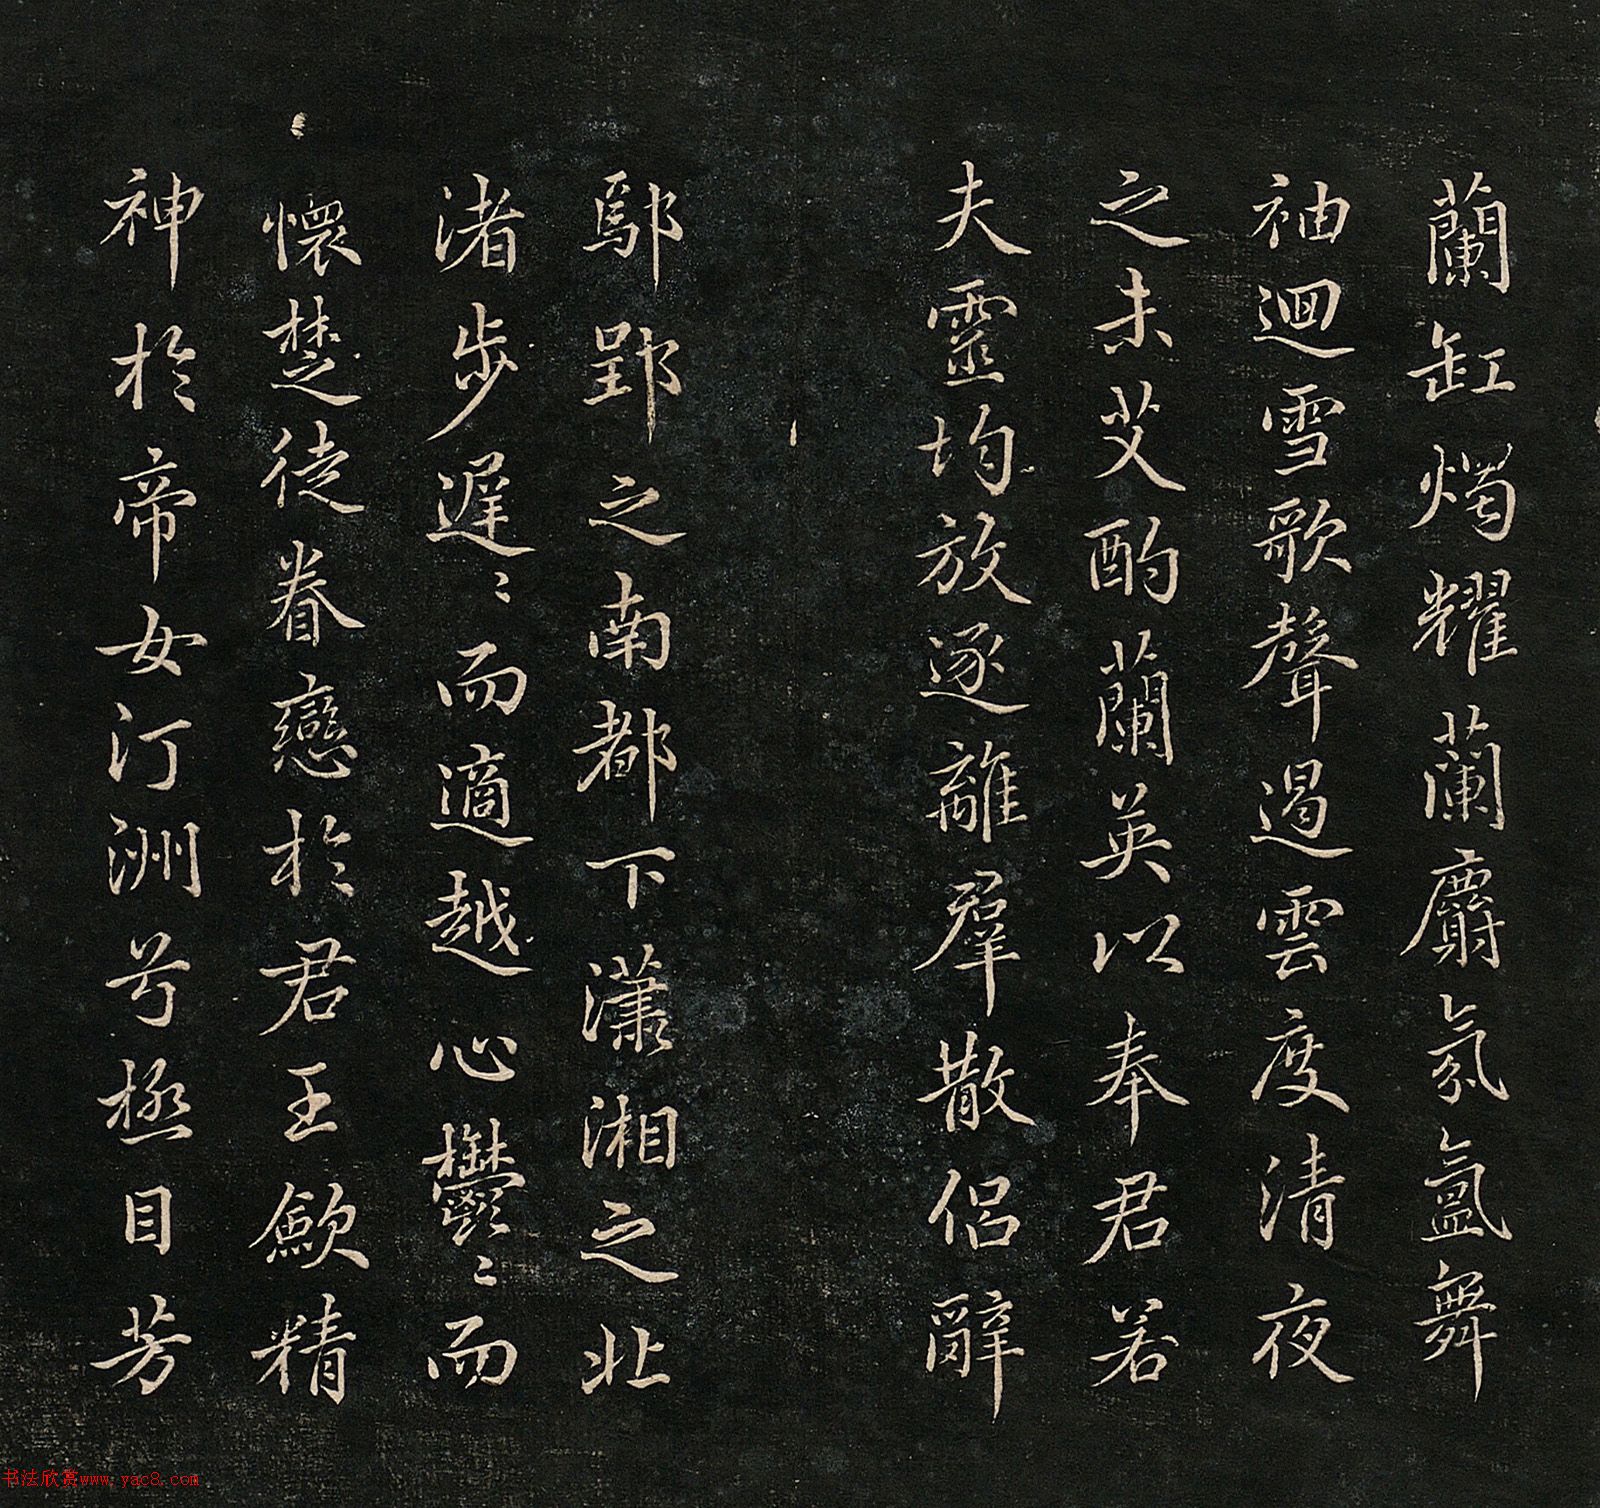 蘭缸燭耀蘭麝氛氳舞
袖迴雪歌聲遏雲度清夜
之未艾酌蘭英以奉君若
夫靈均放逐離羣散侶辭
鄢郢之南都下瀟湘之北
渚步遲〻而適越心鬱〻而
懷楚徒眷戀於君王歛精
神於帝女汀洲兮極目芳
书法欣赏www.yac8.com